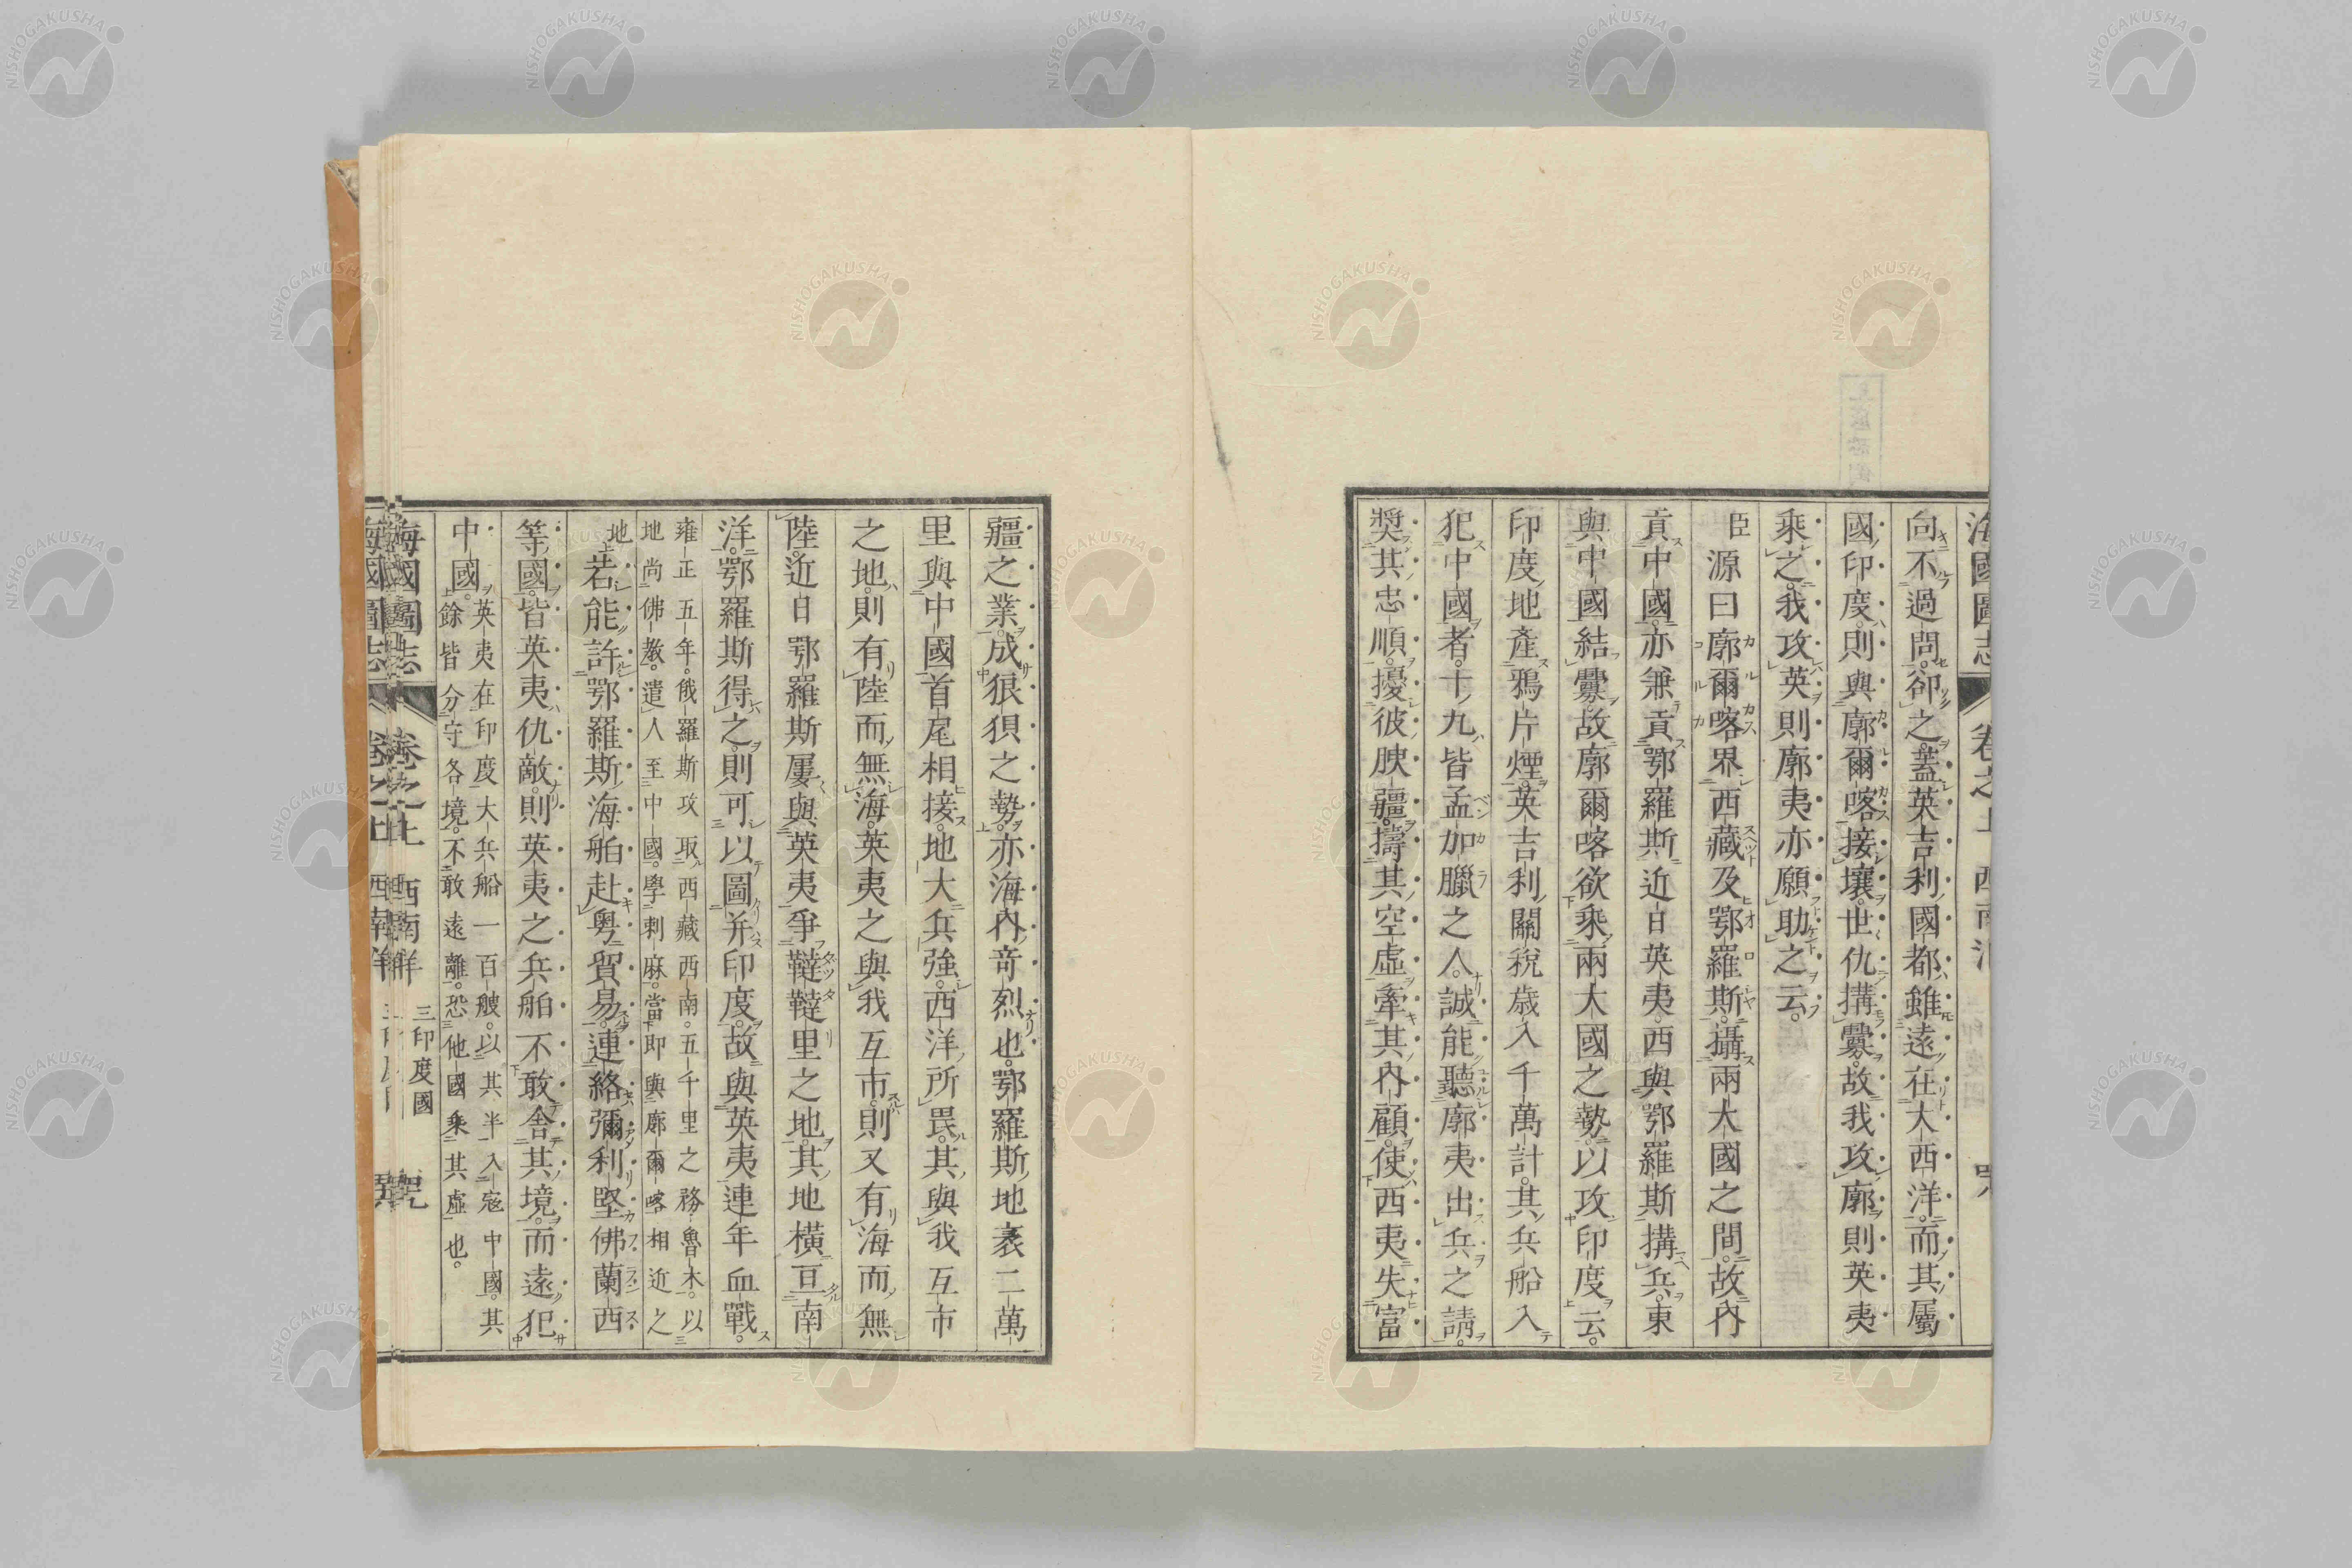 海國圖志 卷之上 西南洋
向不過問。卻之。蓋英吉利國都雖遠在大西洋。而其屬
國印度。則與廓爾喀接壤。世仇搆釁。故我攻廓則英夷
乘之。我攻英則廓夷亦願助之云。
臣源曰廓爾喀界西藏及鄂羅斯。攝兩大國之間。故內
貢中國。亦兼貢鄂羅斯近日英夷。西與鄂羅斯搆兵。東
與中國結釁。故廓爾喀欲乘兩大國之勢。以攻印度云。
印度地產鴉片煙。英吉利關稅歲入千萬計。其兵船入
犯中國者。十九皆孟加臘之人。誠能聽廓夷出兵之請。
奬其忠順。擾彼腴疆。擣其空虛。牽其內顧。使西夷失富
疆之業。成狼狽之勢。亦海內奇烈也。鄂羅斯地袤二萬
里與中國首尾相接。地大兵強。西洋所畏。其與我互市
之地。則有陸而無海。英夷之與我互市。則又有海而無
陸。近日鄂羅斯屢與英夷爭韃韃里之地。其地橫亘南
洋。鄂羅斯得之。則可以圖并印度。故與英夷連年血戰。
雍正五年。俄羅斯攻取西藏西南。五千里之務魯木。以
地尚佛教。遣人至中國。學刺麻。當卽與廓爾喀相近之
地
若能許鄂羅斯海舶赴粵貿易。連絡彌利堅佛蘭西
等國。皆英夷仇敵。則英夷之兵舶不敢舍其境。而遠犯
中國。
英夷在印度大兵船一百艘。以其半入寇中國。其
餘皆分守各境。不敢遠離。恐他國乘其虛也。
海國圖志 卷之上 西南洋 三印度國
NISHOGAKUSHA